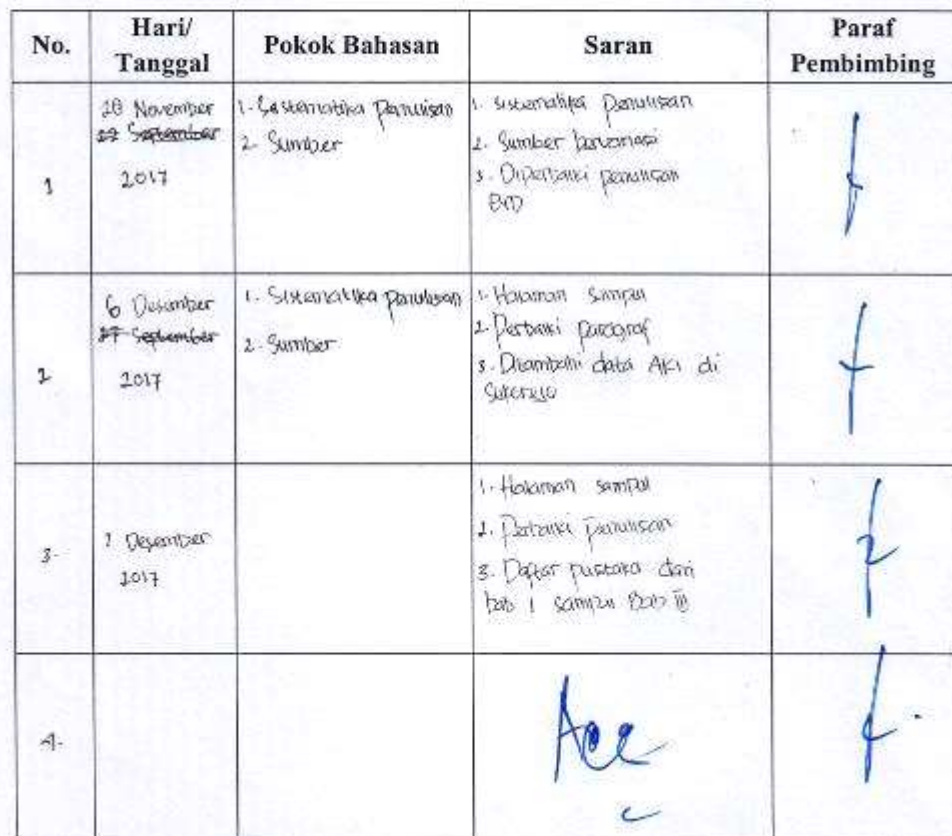 No. Hari/ Tanggal Pokok Bahasan Saran Paraf Pembimbing
1
28 November
September
2017
1. Sistematika Penulisan
2. Sumber
1. Sistematika Penulisan
2. Sumber bervariasi
3. Diperbaiki penulisan
EYD
2
6 Desember
27 September
2017
1. Sistematika Penulisan
2. Sumber
1. Halaman Sampul
2. Perbaiki paragraf
3. Ditambahi data AKI di
Sukorejo
3.
Desember
2017
1. Halaman sampul
2. Perbaiki penulisan
3. Daftar pustaka dari
bab 1 sampai Bab III
4.
Acc